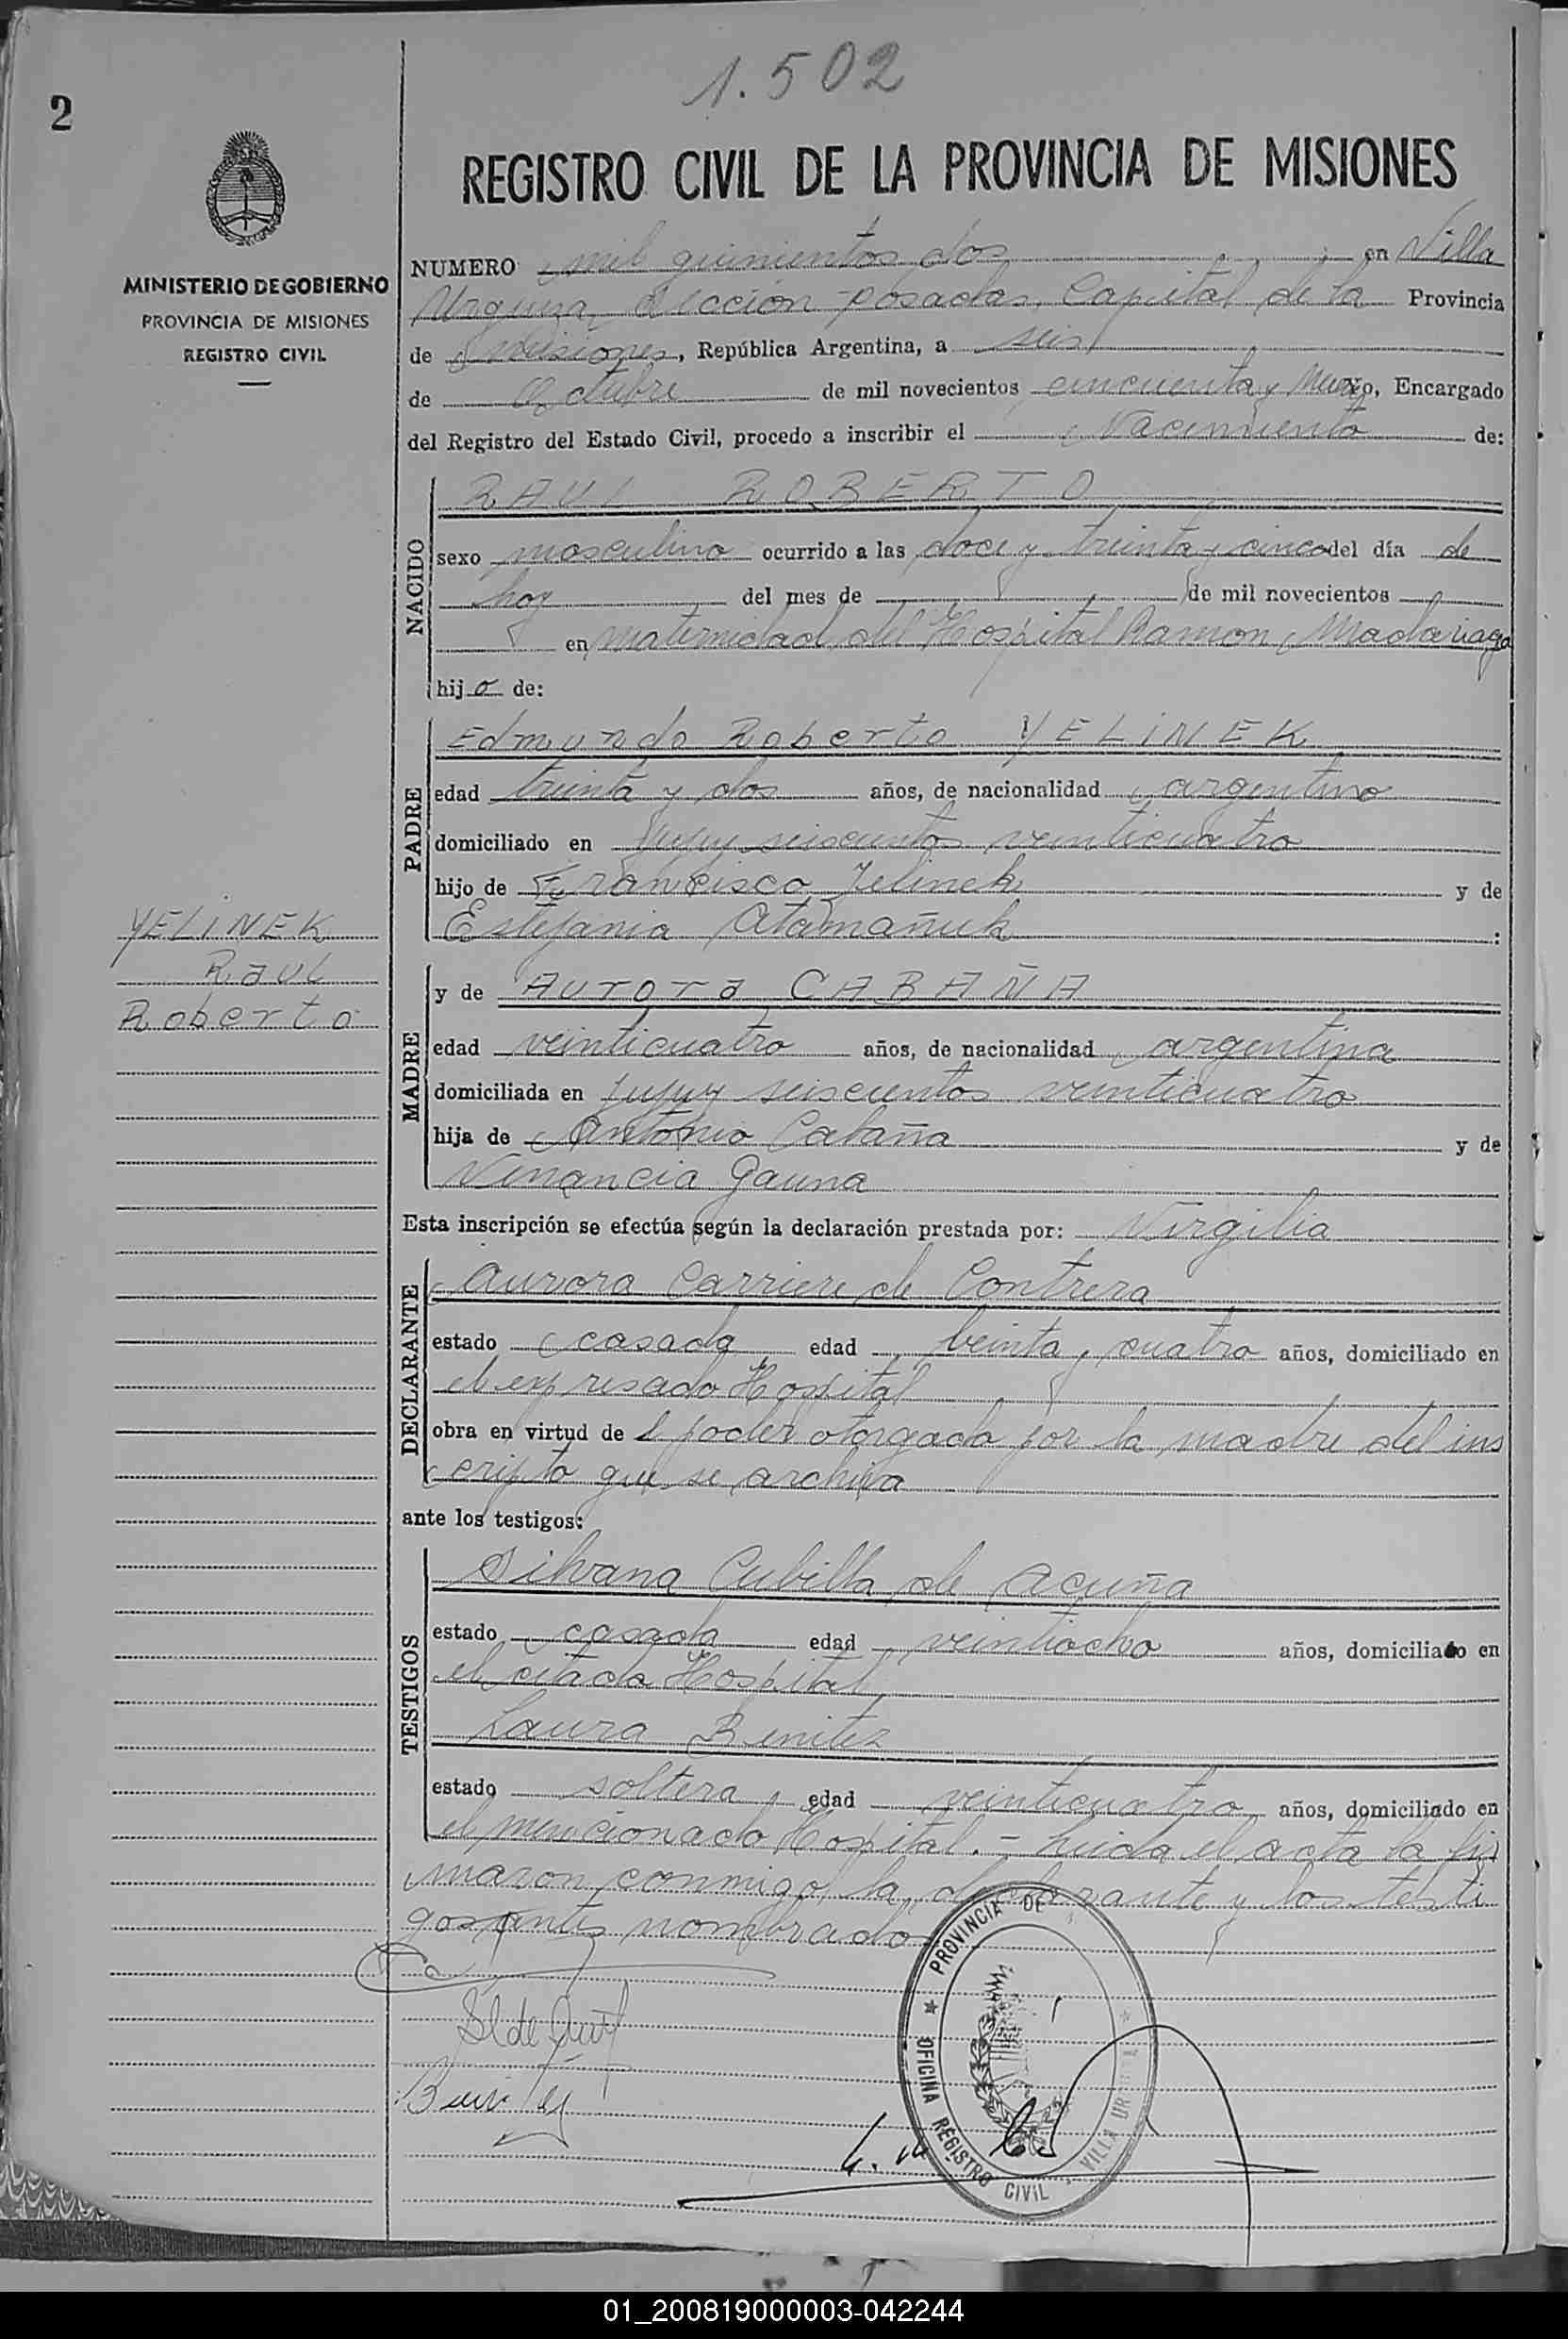 1.502
2
REGISTRO CIVIL DE LA PROVINCIA DE MISIONES
MINISTERIO DE GOBIERNO
PROVINCIA DE MISIONES
REGISTRO CIVIL
NUMERO mil quinientos dos en Villa
Urquiza, Sección Posadas, Capital de la Provincia
de Misiones, República Argentina, a seis
de Octubre de mil novecientos cincuenta y nueve, Encargado
del Registro del Estado Civil, procedo a inscribir el Nacimiento de:
NACIDO
RAUL ROBERTO
sexo masculino ocurrido a las doce y treinta y cinco del día de
hoy del mes de de mil novecientos
en maternidad del Hospital Ramon Madariaga
hijo de:
PADRE
Edmundo Roberto YELINEK
edad treinta y dos años, de nacionalidad argentino
domiciliado en Jujuy seiscientos veinticuatro
hijo de Francisco Jelinek y de
Estefania Atamañuk :
YELINEK
Raul
Roberto
MADRE
y de Aurora CABAÑA
edad veinticuatro años, de nacionalidad argentina
domiciliada en Jujuy seiscientos veinticuatro
hija de Antonio Cabaña y de
Venancia Gauna
Esta inscripción se efectúa según la declaración prestada por: Virgilia
DECLARANTE
Aurora Carriere de Contrera
estado casada edad treinta y cuatro años, domiciliado en
el expresado Hospital
obra en virtud de l poder otorgado por la madre del ins
cripto que se archiva
ante los testigos:
TESTIGOS
Silvana Cubilla de Acuña
estado casada edad veintiocho años, domiciliado en
el citado Hospital
Laura Benitez
estado soltera edad veinticuatro años, domiciliado en
el mencionado Hospital.- Leida el acta la fir
maron conmigo, la declarante y los testi
gos antes nombrados
PROVINCIA DE
OFICINA REGISTRO CIVIL VILLA UR
01_200819000003-042244